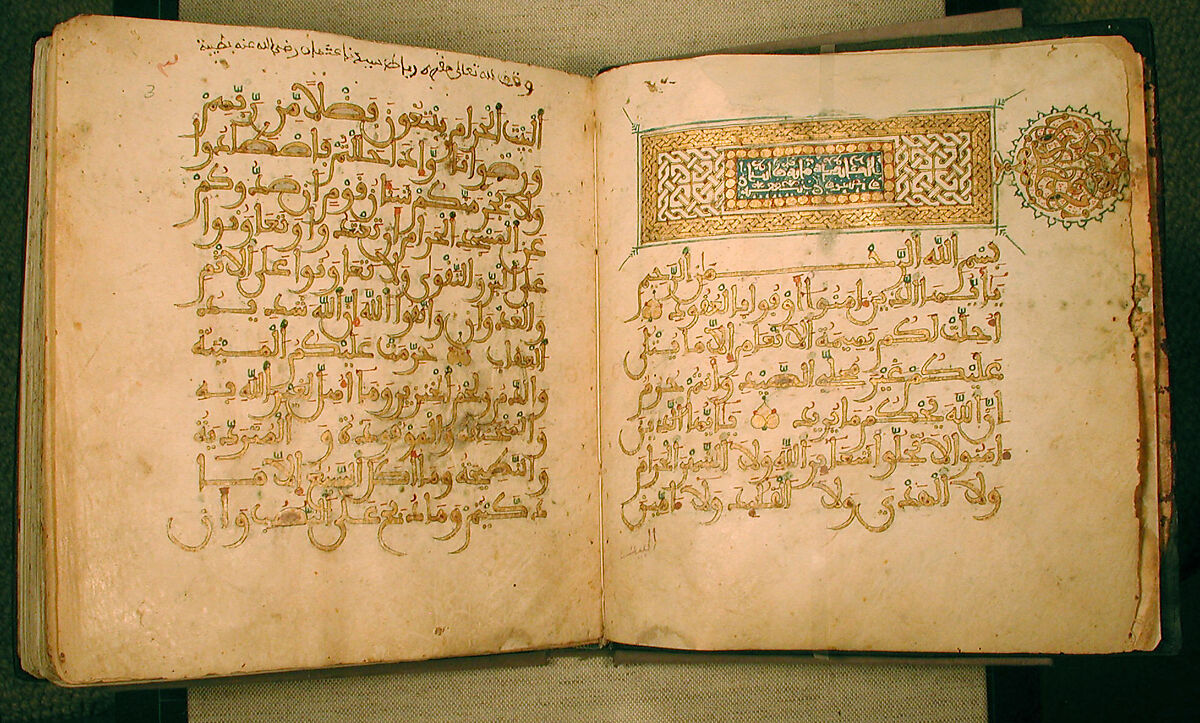 بسم الله الرحمن الرحيم
يأيها الذين ءامنوا أوفوا بالعقود
أحلت لكم بهيمة الأنعام إلا ما يتلى
عليكم غير محلي الصيد وأنتم حرم
إن الله يحكم ما يريد يأيها الذين
ءامنوا لا تحلوا شعائر الله ولا الشهر الحرام
ولا الهدي ولا القلائد ولا ءامين
البيت
وقف لله تعالى مقره رباط سيدنا عثمان رضي الله عنه بطيبة
٣
3
البيت الحرام يبتغون فضلا من ربهم
ورضوانا وإذا حللتم فاصطادوا
ولا يجرمنكم شنئان قوم أن صدوكم
عن المسجد الحرام أن تعتدوا وتعاونوا
على البر والتقوى ولا تعاونوا على الإثم
والعدوان واتقوا الله إن الله شديد
العقاب حرمت عليكم الميتة
والدم ولحم الخنزير وما أهل لغير الله به
والمنخنقة والموقوذة والمتردية
والنطيحة وما أكل السبع إلا ما
ذكيتم وما ذبح على النصب وأن